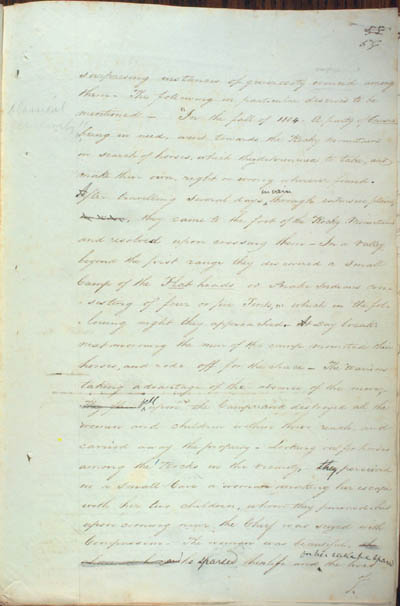 57
surpassing instances of generosity among
them - The following in particular deserves to be
mentioned - "In the fall of 1804. A party of
being in need, went towards the Rocky Mountains
in search of horses, which they determined to take, and
make their own, right or wrong wherever found.
After travelling several days in vain through extensive plains
they came to the foot of the Rocky Mountains
and resolved upon crossing them - In a valley
beyond the first range they discovered a small
Camp of the Flat heads or Snake Indians con
-sisting of four or five Tents, which in the fol
-lowing night they approached. At Day break
next morning the men of the camp mounted their
horses, and rode off for the chace - The Warriors
taking advantage of the absence of the men,
fell upon the Camp and destroyed all the
women and children within their reach and
carried away the property - Looking out for horses
among the Rocks in the vicinity, they perceived
in a small Cave a woman making her escape
with her two children, whom they pursued but
upon coming near, the Chief was seized with
Compassion. The woman was beautiful
and he spared the life and the lives